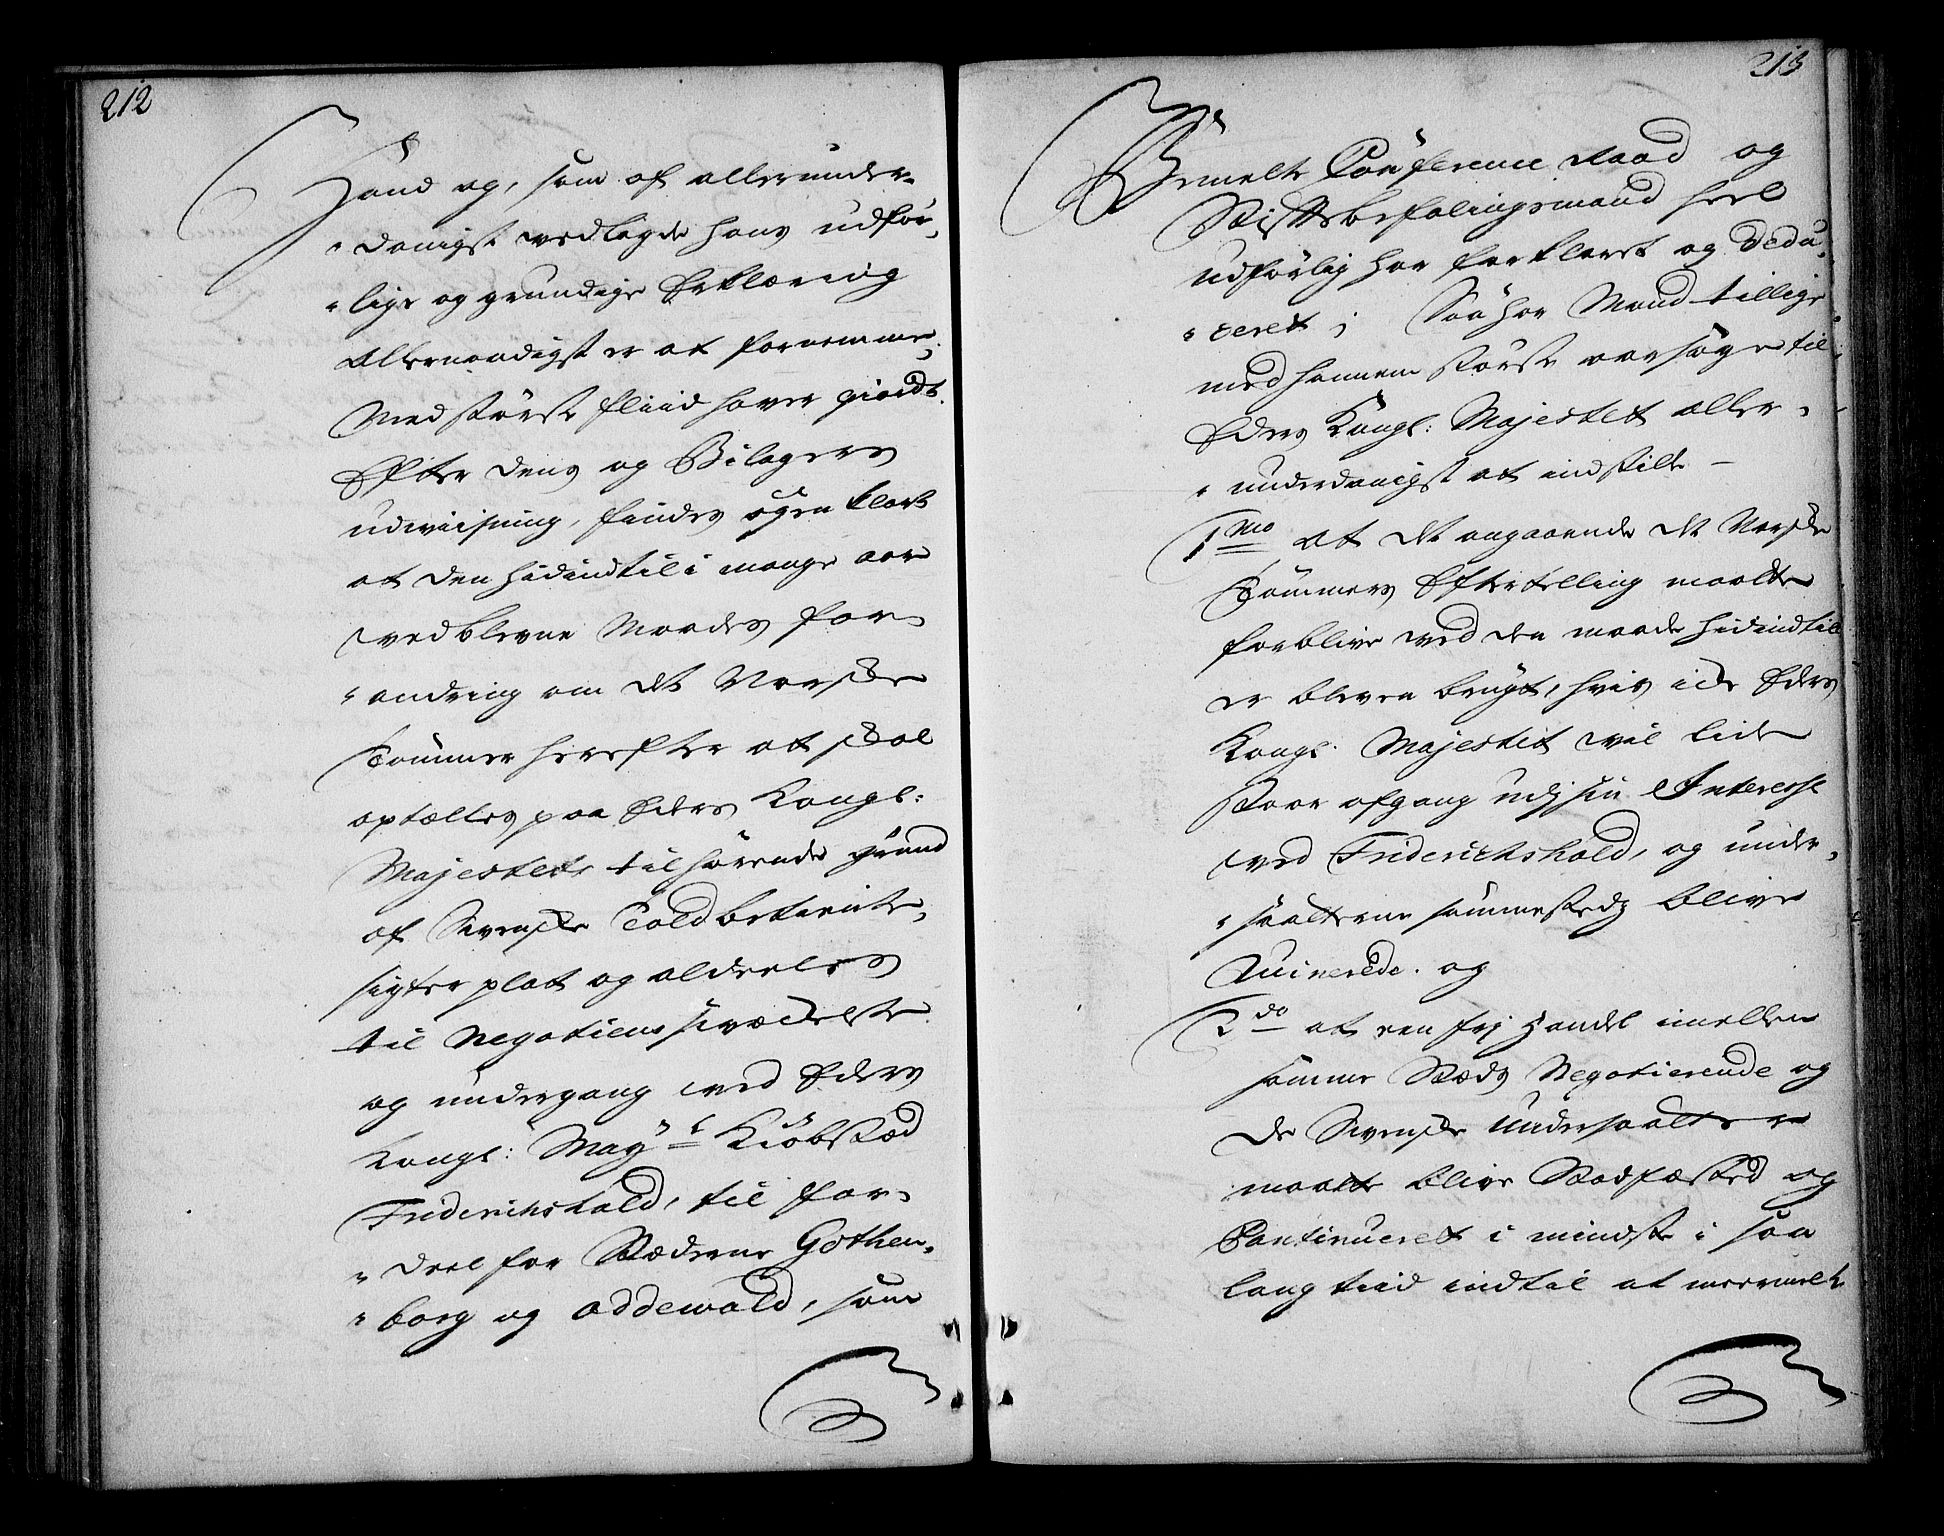 212
Hand og, som af allerunder-
danigst vedlagde hans udför-
lige og grundige Erklæring
Allernaadigst er at fornemme,
Med störste fliid haver giordt.
Efter dens og Bilagers
udwiisning, findes ogen klart
at den hidindtil i mange aar
vedblevne Maades for-
andring om det Norske
Tömmer herefter at skal
optælles paa Eders Kongl:
Majestets tilhörende grund
af Svenske Toldbetiente,
sigter plat og aldeeles
til Negotiens svækkelse
og undergang ved Eders
Kongl: May.ts Kiöbstæd
Friderichshald, til for-
deel for Stæderne Gothen-
borg og Oddewald, som
213
Bemelte Conference Raad og
Stiftsbefalingsmand heel
udförlig har forklaret og dedu-
ceret; Saa har Mand tillige
med hannem störste aarsage til
Eders Kongl: Majestet aller-
underdanigst at indstille
1mo at det angaaende det Norske
Tömmers Eftertelling maatte
forblive ved den maade hidindtil
er bleven brugt, hvis icke Eders
Kongl: Majestet vil lide
stoor afgang udj sin Interesse
ved Friderichshald, og under-
saatterne sammestedz blive
Ruinerede. og
2do at een frj Handel imellem
samme Stæds Negotierende og
de Svenske Undersaatter
maatte blive Stadfæsted og
Continueret i mindste i saa
lang tiid indtil at meermelte